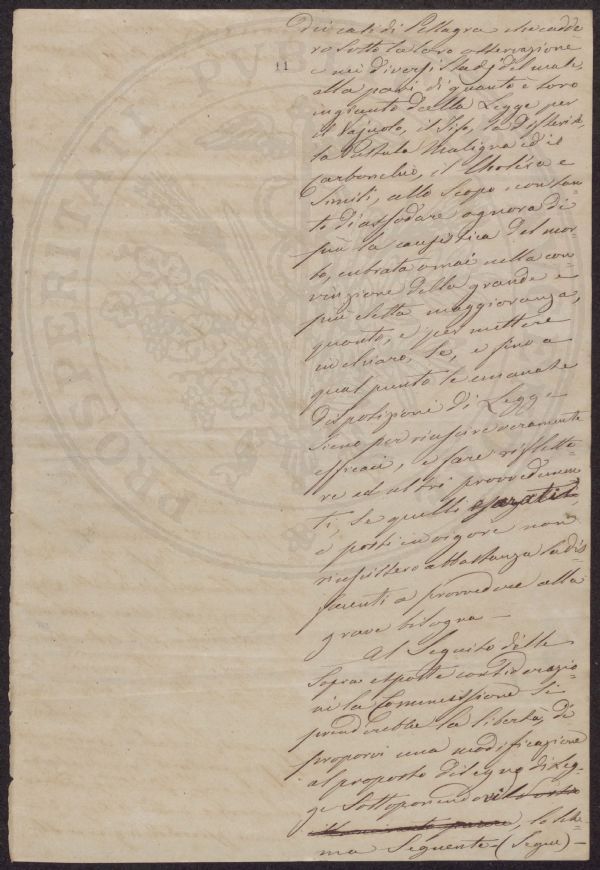 11
dei casi di Pellagra che cadde
ro sotto la loro osservazione
e nei diversi stadj del male,
alla pari di quanto è loro
ingiunto dalla Legge per
il Vajuolo, il Tifo, la Difterite,
la Pustula Maligna ed il
Carbonchio, il Choléra e
simili, allo scopo con tan
to di assodare ognora di
più la causa del mor
bo, entrata omai nella con
vinzione della grande e
più eletta maggioranza,
quanto, e per mettere
in chiaro, se, e fino a
qual punto le emanate
disposizioni di Legge
sieno per riuscire veramente
efficaci, e fare riflette
re ad altri provvedimen
ti, se quelli
e posti in vigore non
riuscissero abbastanza sod
facenti a provvedere alla
grave bisogna —
Al seguito delle
sopra esposte considerazio
ni la Commissione si
prenderebbe la libertà di
proporvi una modificazione
al proposto disegno di Leg
ge sottoponendovi
lo sche
ma seguente — (segue) —
PROSPERITATI PVBL